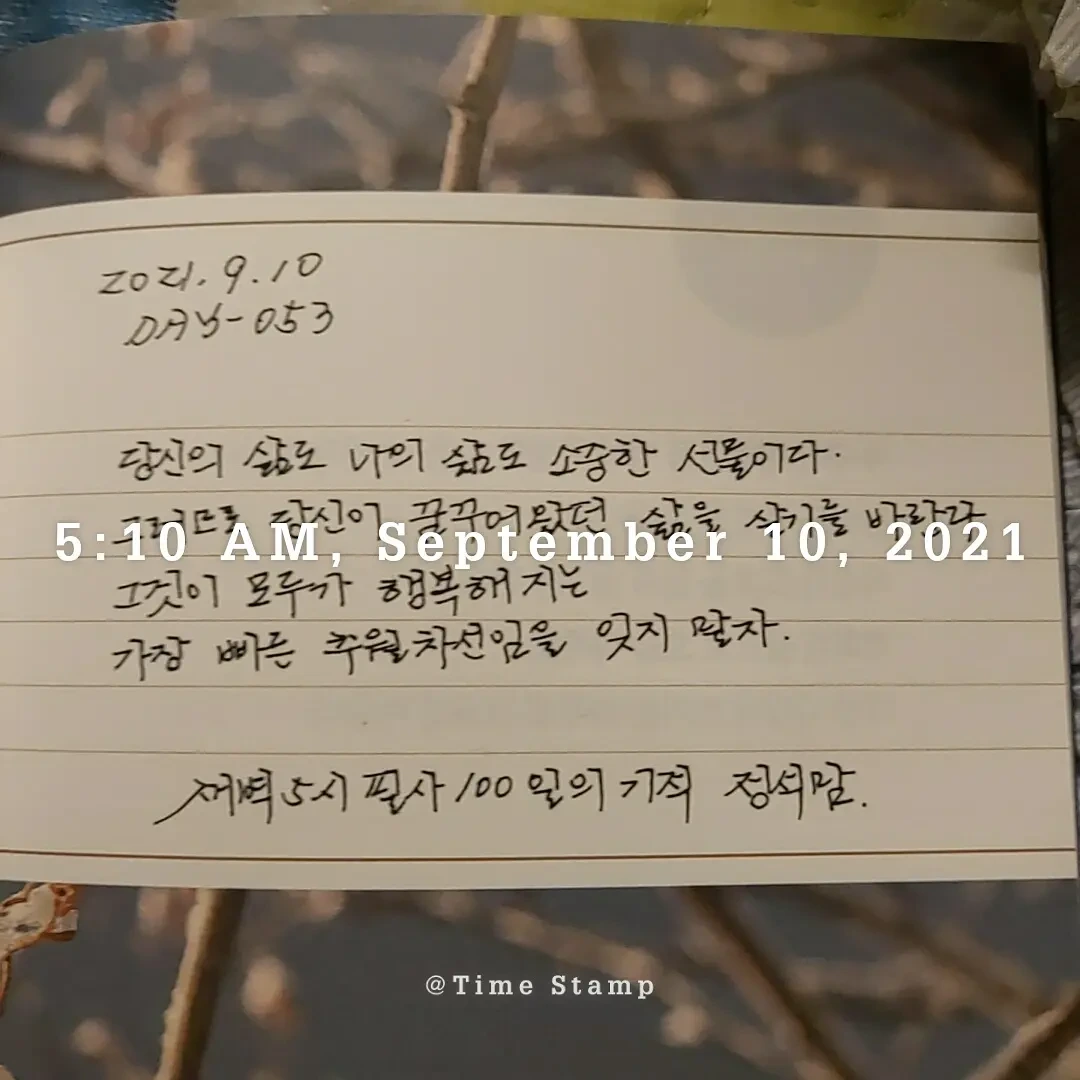 2021.9.10
DAY-053
당신의 삶도 나의 삶도 소중한 선물이다.
그러므로 당신이 꿈꾸어왔던 삶을 살기를 바란다
5:10 AM, September 10, 2021
그것이 모두가 행복해지는
가장 빠른 추월차선임을 잊지 말자.
새벽5시 필사100일의 기적 정석맘.
@Time Stamp